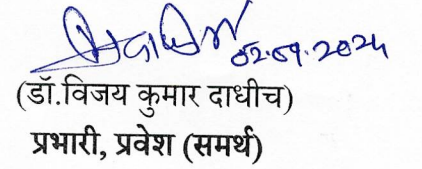 02.09.2024
(डॉ.विजय कुमार दाधीच)
प्रभारी, प्रवेश (समर्थ)